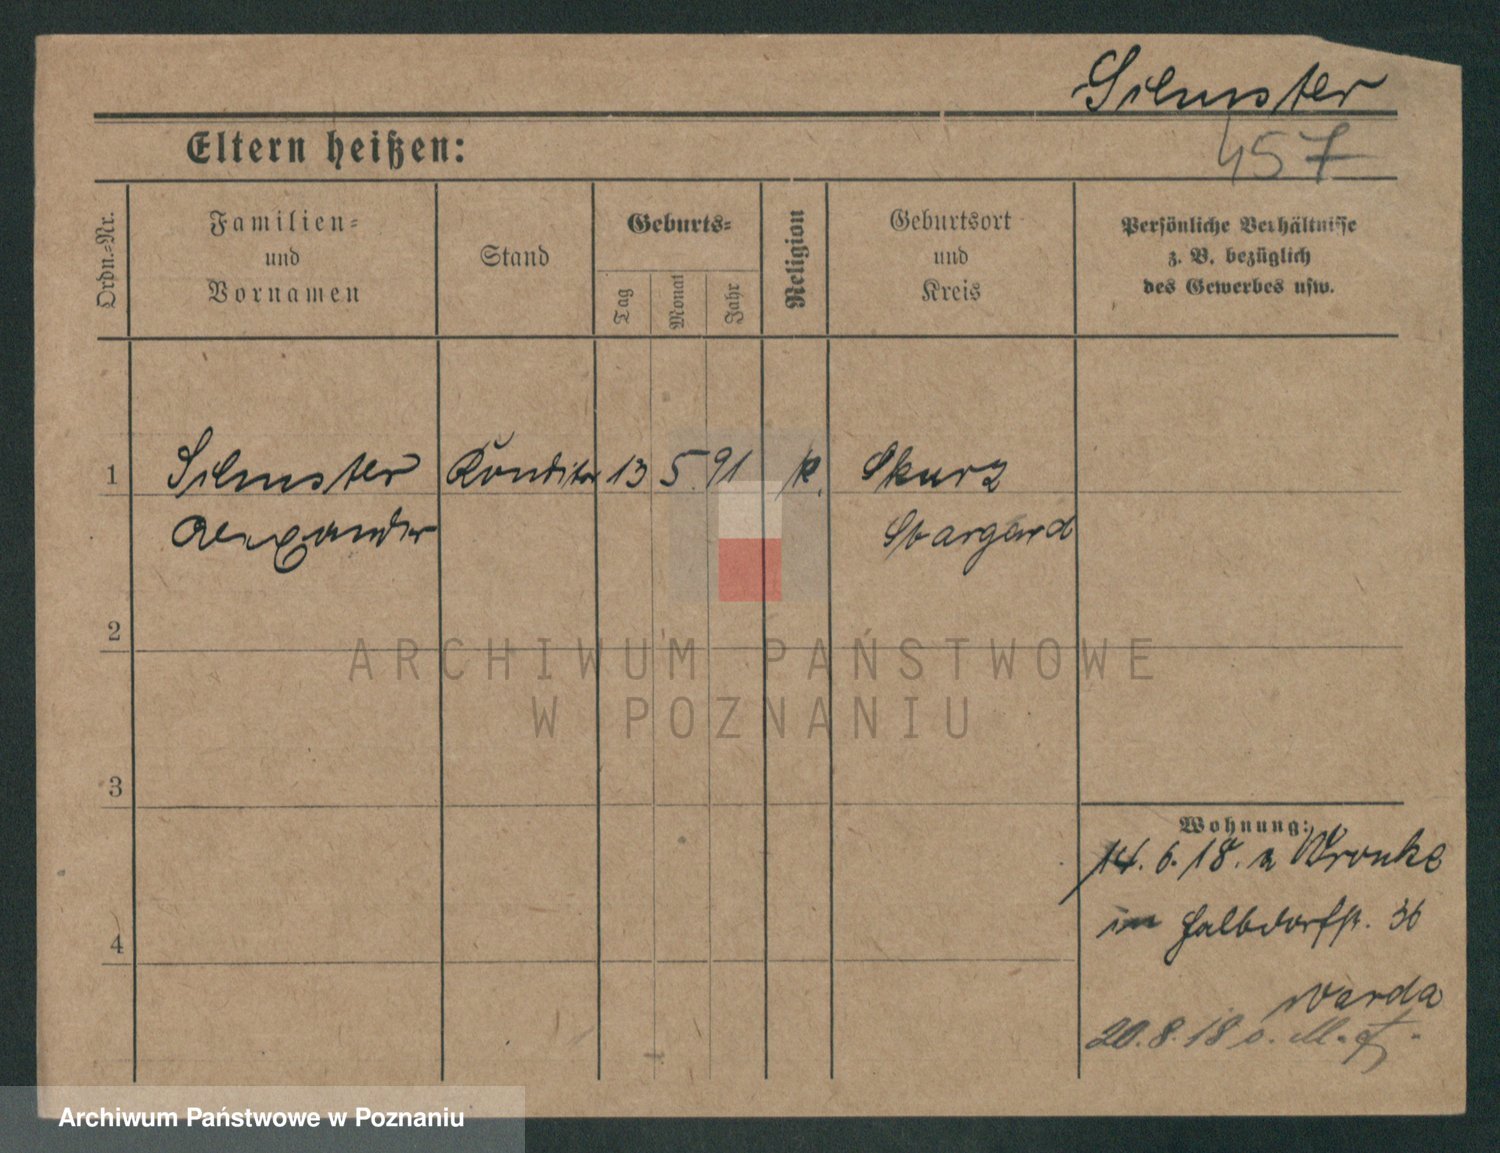 Silmster
457
Eltern heißen:
Ordn.-Nr.
Familien-
und
Vornamen
Stand
Geburts-
Tag
Monat
Jahr
Religion
Geburtsort
und
Kreis
Persönliche Verhältnisse
z. B. bezüglich
des Gewerbes usw.
1 Silmster Konditor 13 5. 91 k. Skurz
Alexander Stargard
2
ARCHIWUM PAŃSTWOWE
W POZNANIU
3
Wohnung:
14. 6. 18. a Wronke
in Halbdorfstr. 36
Warda
4
20. 8. 18 o.
Archiwum Państwowe w Poznaniu